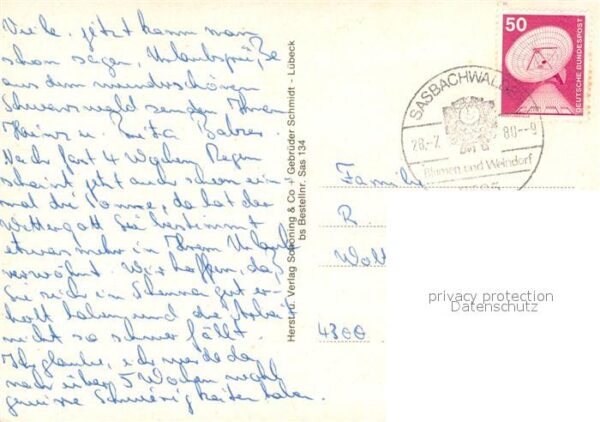 Viele. jetzt kann man
schon sagen, Urlaubsgrüße
aus dem wunderschönen
Schwarzwald senden Ihnen
Heinz u.
Nach fast 4 Wochen Regen
scheint jetzt auch schon ein-
mal die Sonne, da hat der
Wettergott Sie bestimmt
etwas mehr in Ihrem Urlaub
verwöhnt. Wir hoffen, daß
Sie sich in gut er-
holt haben und die Arbeit
nicht so schwer fällt.
Ich glaube, ich werde da
nach über 5 Wochen wohl
gewisse Schwierigkeiten haben.
Herst. u. Verlag Schöning & Co + Gebrüder Schmidt - Lübeck
bs Bestellnr. Sas 134
50
DEUTSCHE BUNDESPOST
SASBACHWALDEN
28.-7. 80.--9
Blumen und Weindorf
Familie
R.
Walt
4300
privacy protection
Datenschutz